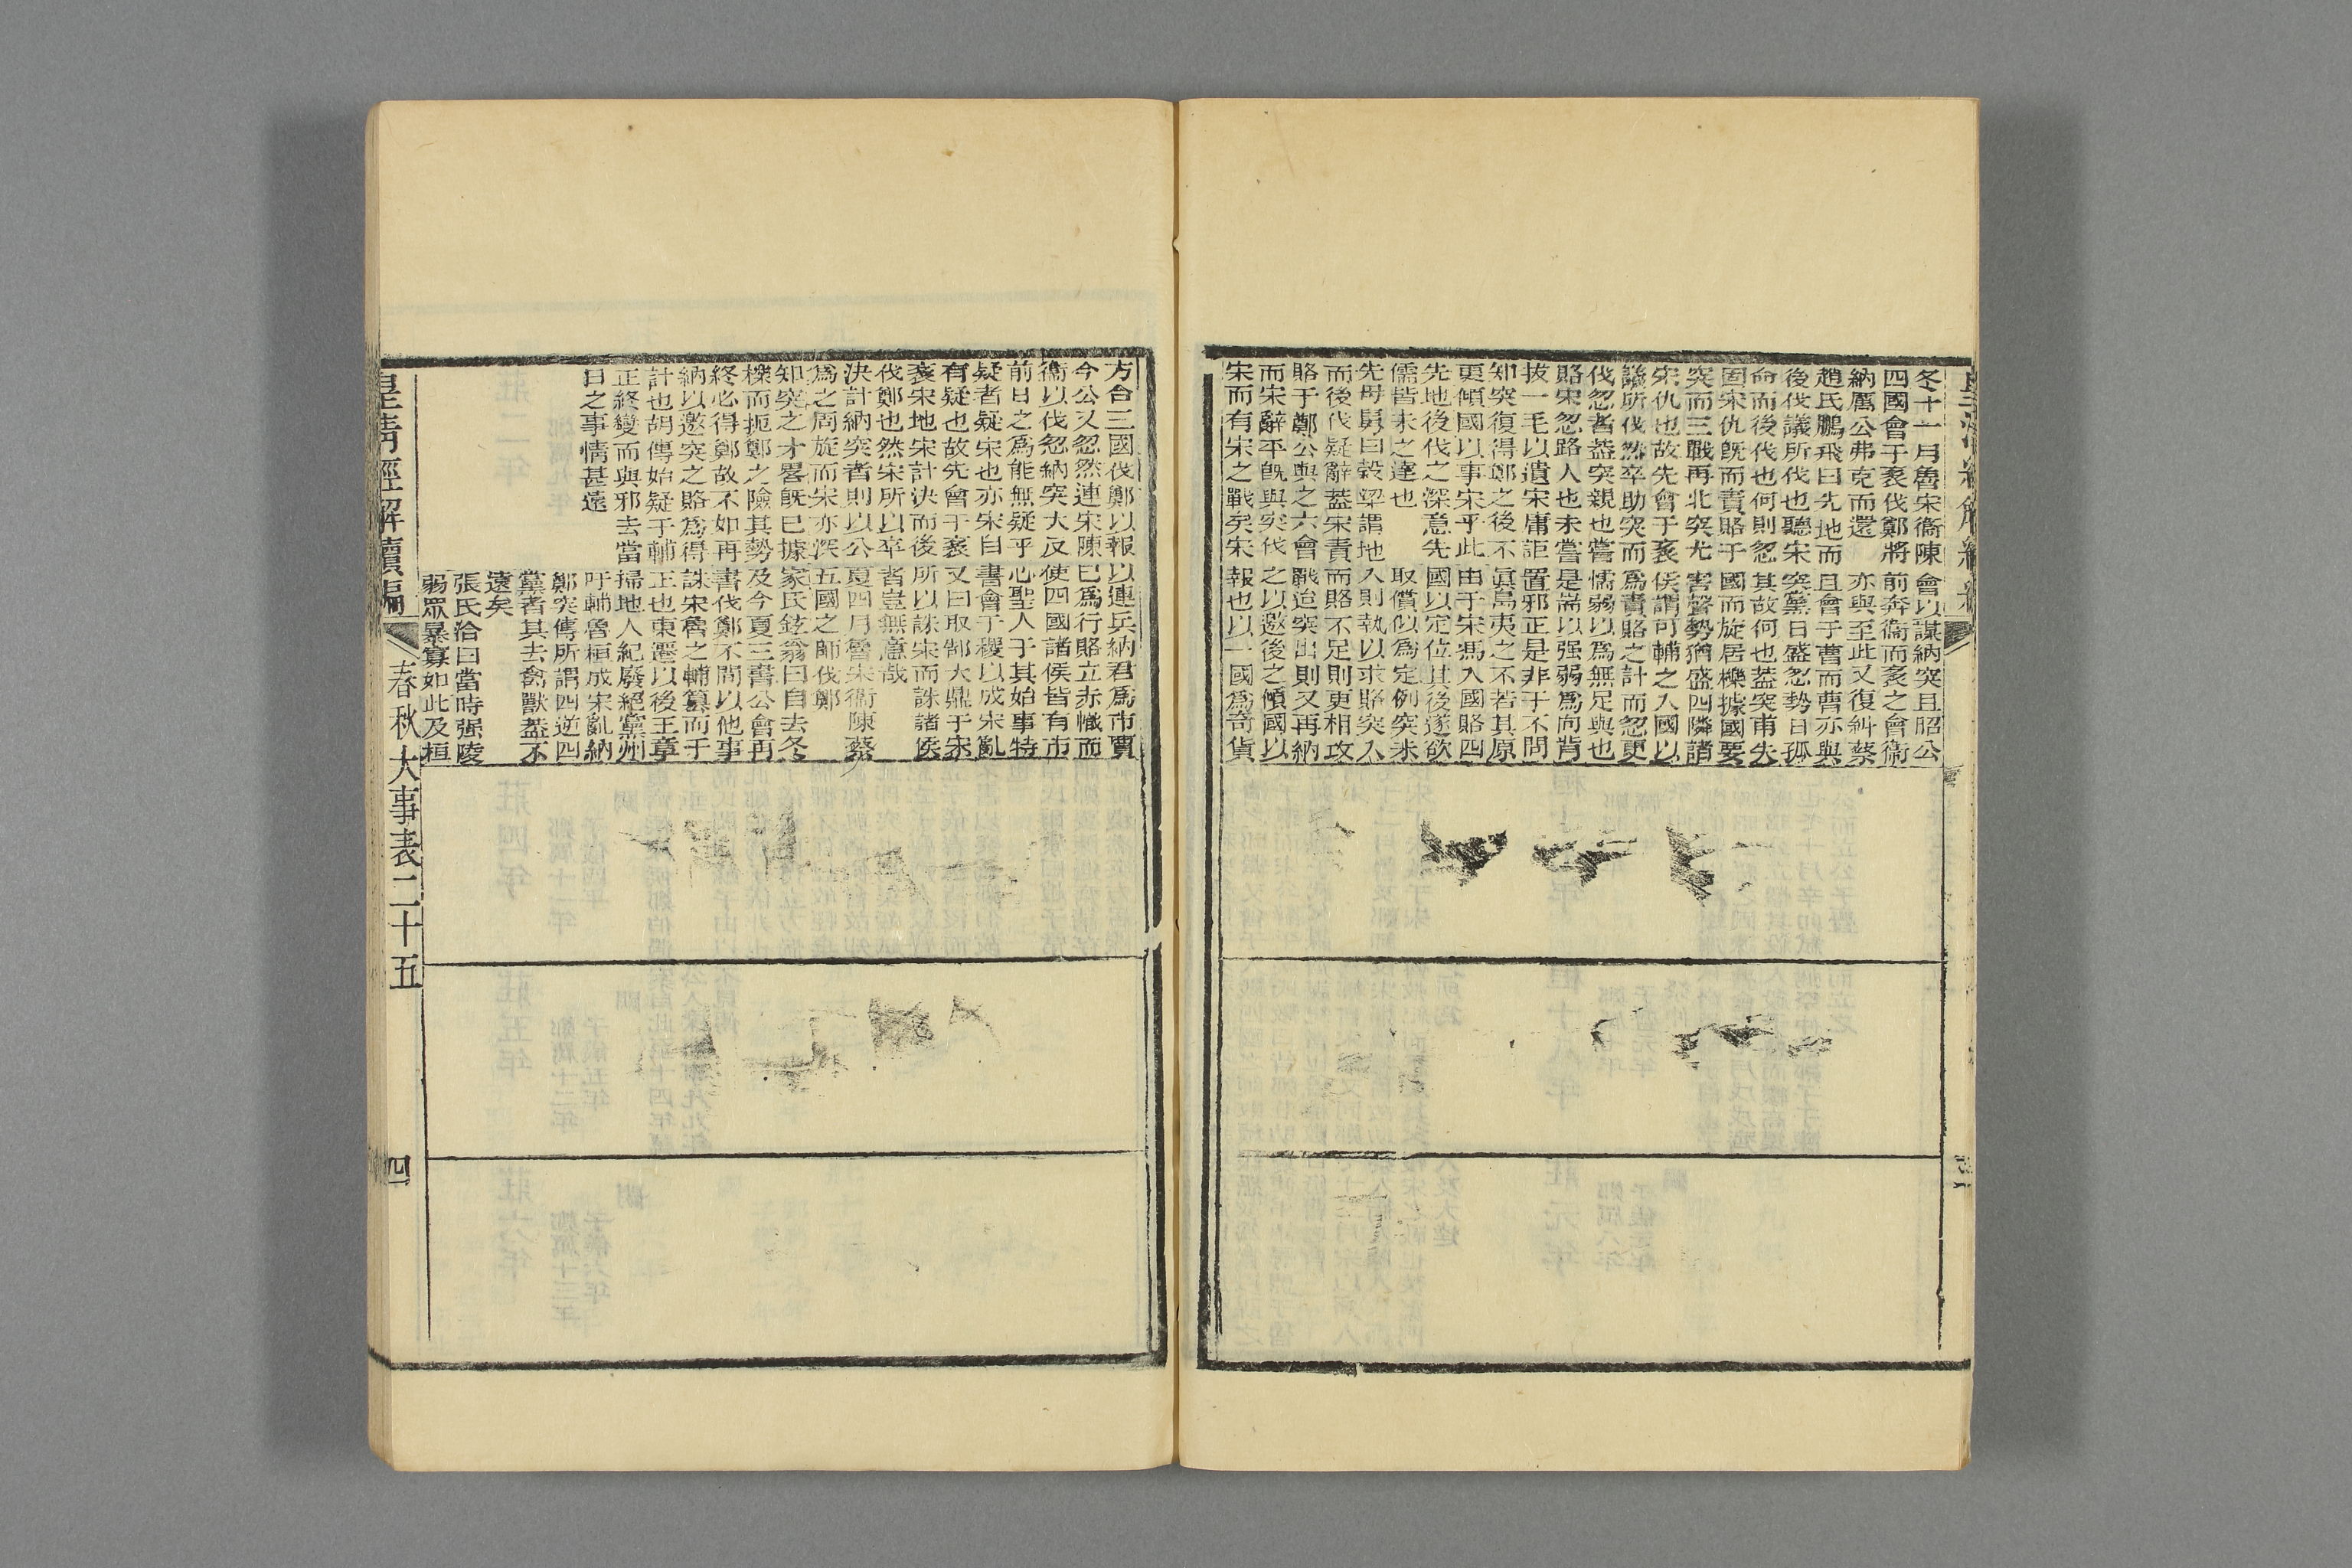 冬十一月魯宋衞陳
四國會于袲伐鄭將
納厲公弗克而還
趙氏鵬飛曰先地而
後伐議所伐也聽宋
命而後伐也何則忽
固宋仇旣而責賂于
突而三戰再北突尤
宋仇也故先會于袲
議所伐然卒助突而
伐忽者蓋突親也嘗
賂宋忽路人也未嘗
拔一毛以遺宋庸詎
知突復得鄭之後不
更傾國以事宋乎此
先地後伐之深意先
儒皆未之達也
先母舅曰穀梁謂地
而後伐疑辭蓋宋責
賂于鄭公與之六會
而宋辭平旣與突伐
宋而有宋之戰矣宋
會以謀納突且昭公
前奔衞而袲之會衞
亦與至此又復糾蔡
且會于曹而曹亦與
突黨日盛忽勢日孤
其故何也蓋突甫失
國而旋居櫟據國要
害聲勢猶盛四隣諸
侯謂可輔之入國以
爲責賂之計而忽更
懦弱以爲無足與也
是耑以强弱爲向背
置邪正是非于不問
眞島夷之不若其原
由于宋馮入國賂四
國以定位其後遂欲
取償似爲定例突未
入則執以求賂突入
而賂不足則更相攻
戰迨突出則又再納
之以邀後之傾國以
報也以一國爲奇貨
方合三國伐鄭以報
今公又忽然連宋陳
衞以伐忽納突大反
前日之爲能無疑乎
疑者疑宋也亦宋自
有疑也故先會于袲
袲宋地宋計決而後
伐鄭也然宋所以卒
決計納突者則以公
爲之周旋而宋亦深
知突之才畧旣已據
櫟而扼鄭之險其勢
終必得鄭故不如再
納以邀突之賂爲得
計也胡傳始疑于輔
正終變而與邪去當
日之事情甚遠
以連兵納君爲市賈
已爲行賂立赤幟而
使四國諸侯皆有市
心聖人于其始事特
書會于稷以成宋亂
又曰取郜大鼎于宋
所以誅宋而誅諸侯
者豈無意哉
夏四月魯宋衞陳蔡
五國之師伐鄭
家氏鉉翁曰自去冬
及今夏三書公會再
書伐鄭不問以他事
誅宋魯之輔篡而于
正也東遷以後王章
掃地人紀廢絕黨州
吁輔魯桓成宋亂納
鄭突傳所謂四逆四
黨者其去禽獸蓋不
遠矣
張氏洽曰當時强陵
弱眾暴寡如此及桓
皇清經解續編
春秋大事表二十五
四